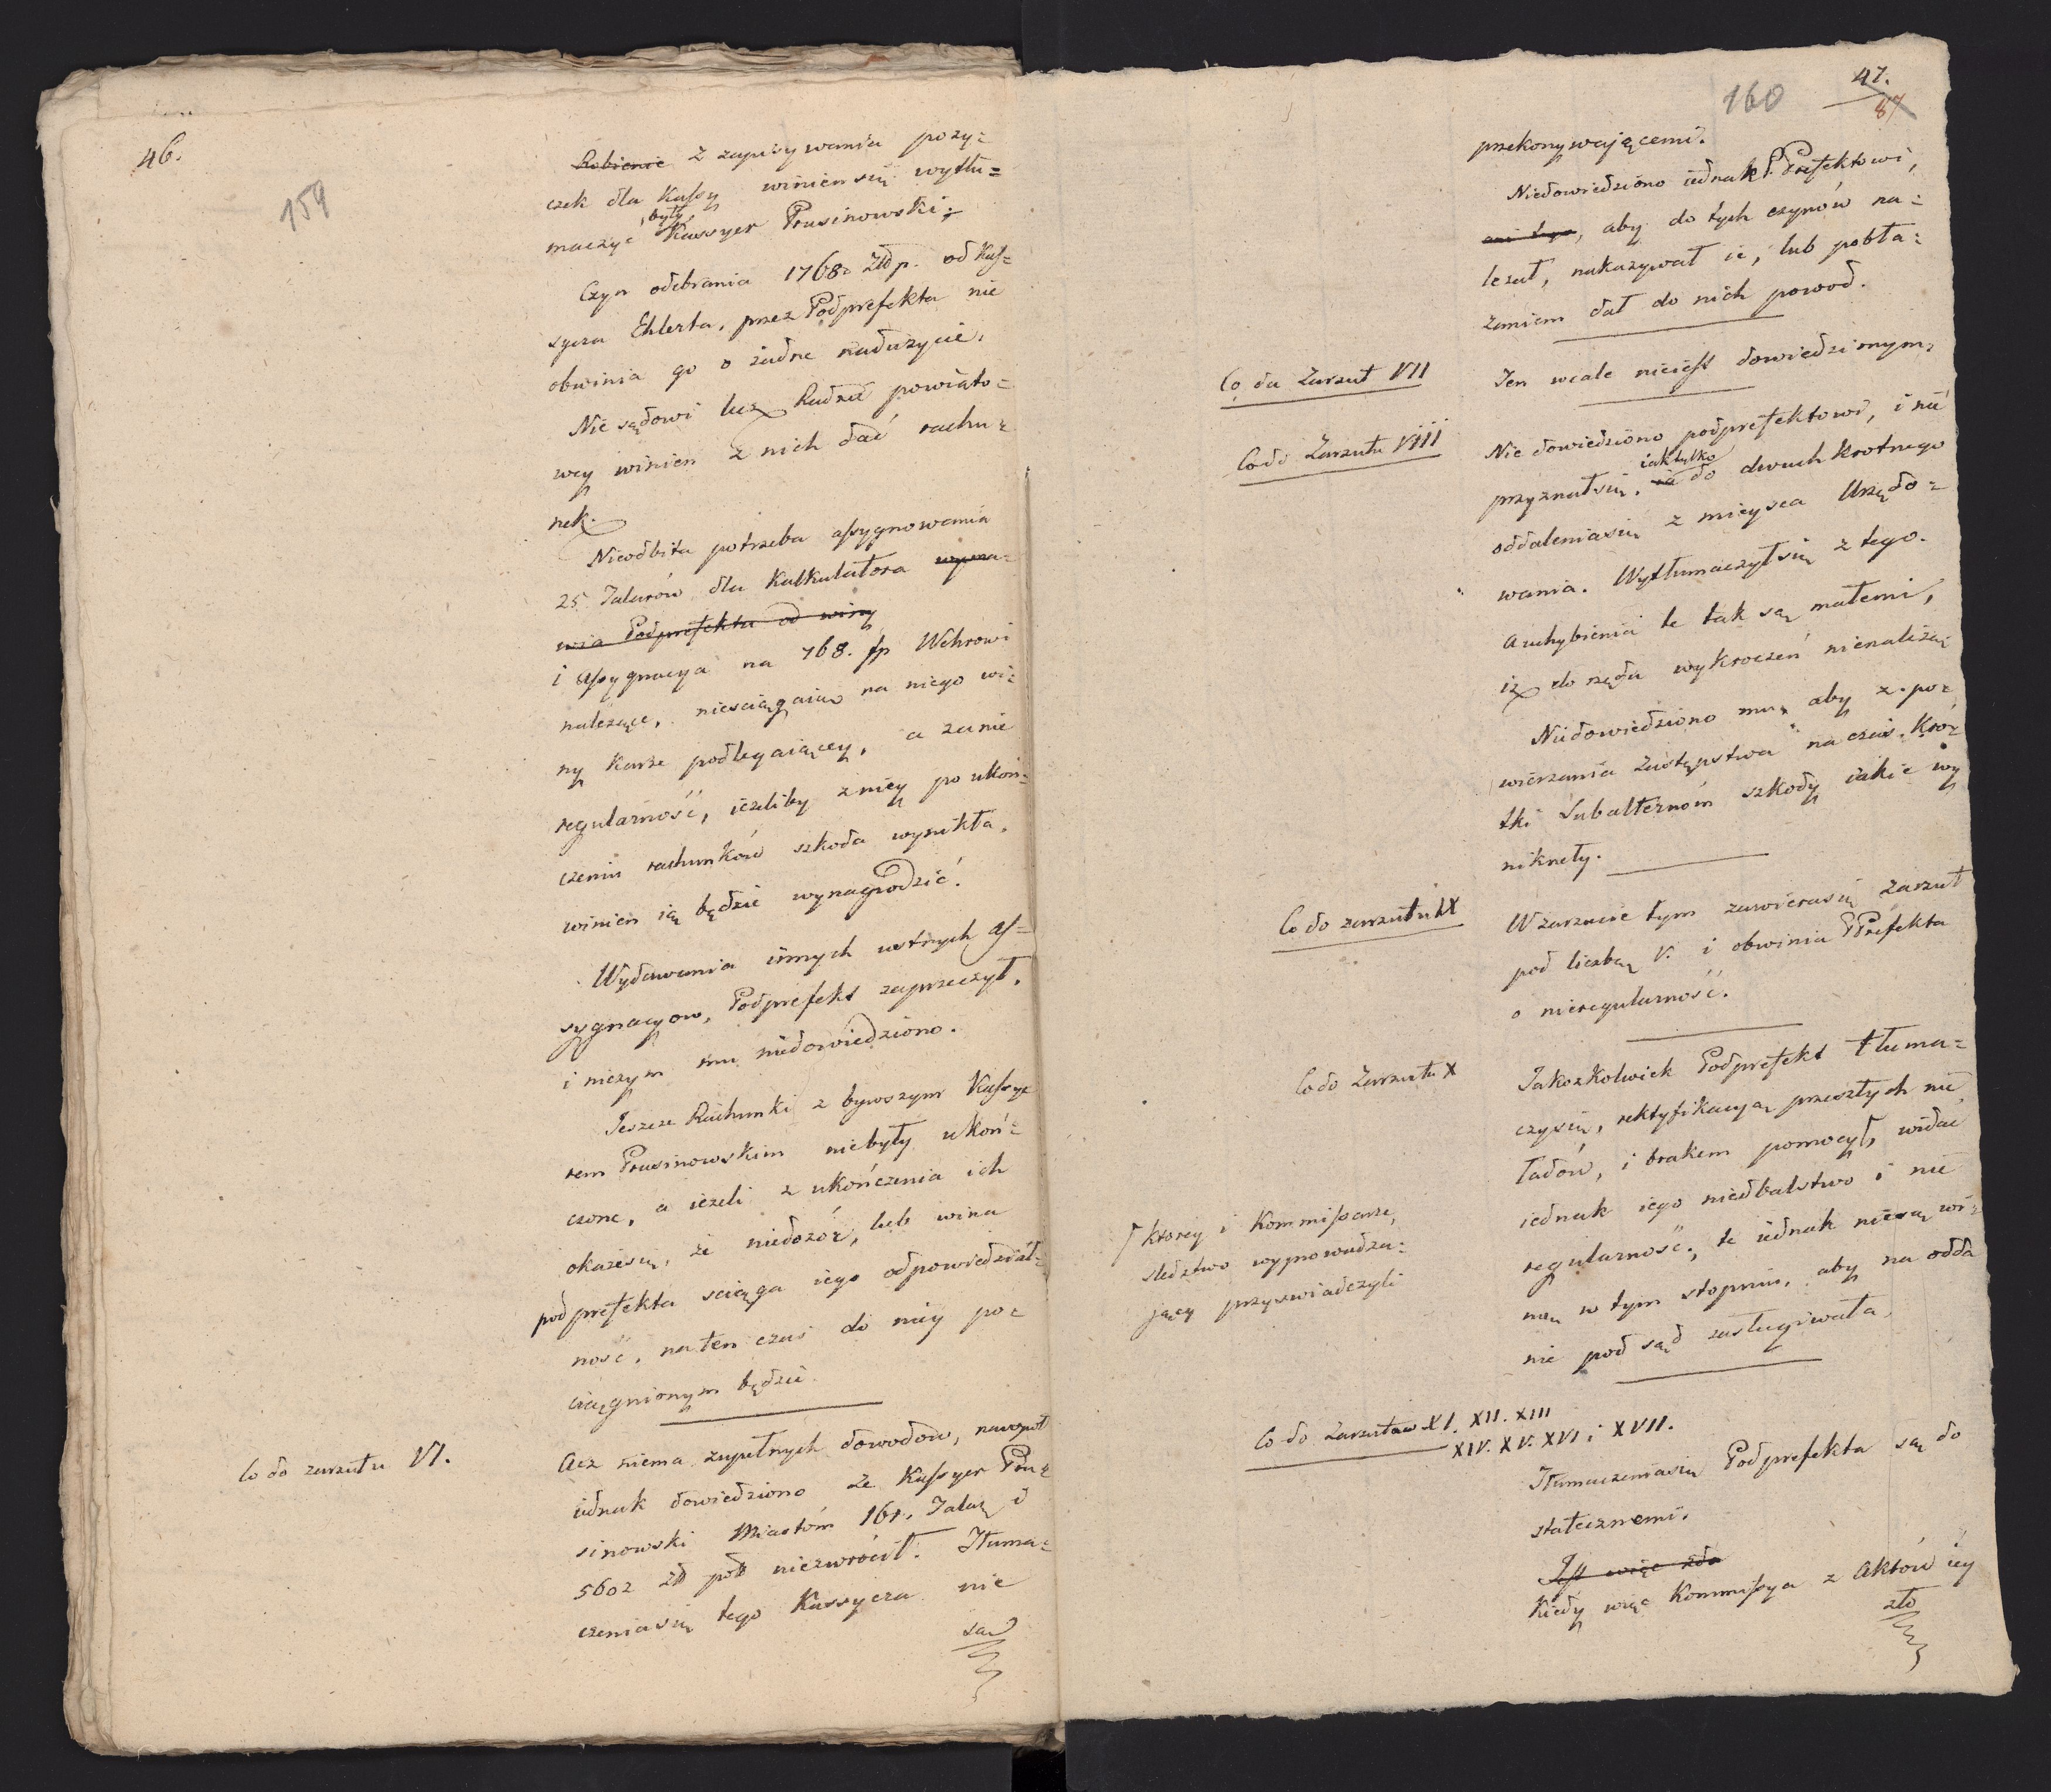 46.
159
Robienie z zapisywania poży=
czek dla Kassy winien się wytłu=
maczyć były Kassyer Prusinowski.
Czyn odebrania 1768. Złp. od Kas=
syera Ehlerta, przez Podprefekta nie
obwinia go o żadne nadużycie.
Nie sądowi lecz Radzie powiato=
wey winien z nich dać rachu=
nek.
Nieodbita potrzeba assygnowania
25 Talarów dla Kalkulatora
wia Podprefekta od winy
i assygnacya na 768. fp Wehrowi
należące, niesciągaią na niego wi=
ny karze podlegaiącey, a za nie
regularność, ieżeliby z niey po ukoń=
czeniu rachunków szkoda wynikła,
winien ią będzie wynagrodzić.
Wydawania innych ustnych as=
sygnacyow, Podprefekt zaprzeczył,
i niczym mu niedowiedziono.
Jeszcze Rachunki z bywszym Kassye
rem Prusinowskim niebyły ukoń=
czone, a ieżeli z ukończenia ich
okaże się, że niedozór, lub wina
podprefekta sciąga iego odpowiedzial=
ność, na ten czas do niey po=
ciągnionym będzie.
Co do zarzutu VI.
Acz niema zupełnych dowodow, nawpół
iednak dowiedziono że Kassyer Pru=
sinowski Miastom 161. Talar. i
5602 zł pol niezwrócił. Tłuma=
czenia się tego Kassyera nie
są
160
47.
87
przekonywaiącemi.
Niedowiedziono iednak P.Prefektowi,
ani tego, aby do tych czynów na=
leżał, nakazywał ie, lub pobła=
żaniem dał do nich powod.
Co do Zarzut VII
Ten wcale nieiest dowiedzionym.
Co do Zarzutu VIII
Nie dowiedziono podprefektowi, i nie
przyznał się, iak tylko do dwuchkrotnego
oddalenia się z mieysca Urzędo=
wania. Wytłumaczył się z tego.
a uchybienia te tak są małemi,
iż do rzędu wykroczeń nienależą.
Niedowiedziono mu, aby z po=
wierzania Zastępstwa na czas Kró=
tki Subalternom szkody iakie wy
niknęły.
Co do zarzutu IX
W zarzucie tym zawiera się Zarzut
pod liczbą V. i obwinia PPrefekta
o nieregularność.
Co do Zarzutu X
Jakożkolwiek Podprefekt tłuma=
czy się, rektyfikacyą przeszłych nie
ładów, i brakem pomocy, widać
iednak iego niedbalstwo i nie
regularność; te iednak nie są wi=
ną w tym stopniu, aby na odda
nie pod sąd zasługiwała.
ktorey i Kommissarze,
sledztwo wyprowadza=
jący przyswiadczyli
Co do Zarzutow XI. XII. XIII
XIV. XV. XVI i XVII.
Tłumaczenia się Podprefekta są do
statecznemi.
Jest więc
Kiedy więc Kommissya z Aktów iey
zło